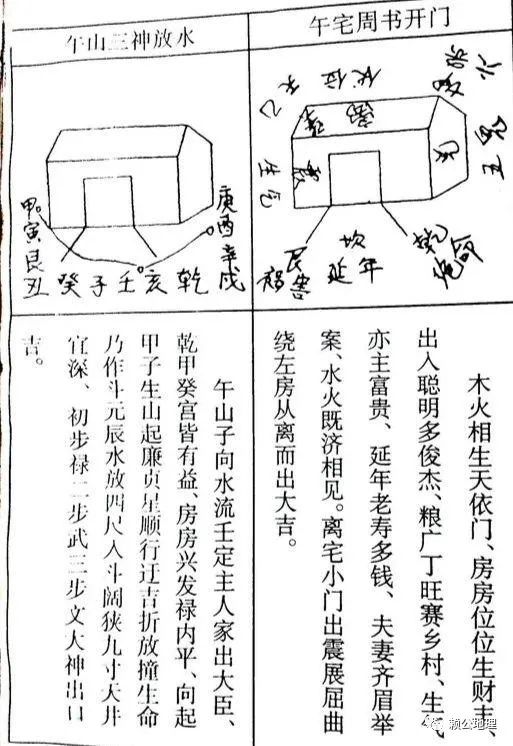 午宅周书开门
六煞
伏位
离
巽
震
兑
艮
祸害
坎
延年
乾
绝命
木火相生天依门、房房位位生财丰、
出入聪明多俊杰、粮广丁旺赛乡村、生气
亦主富贵、延年老寿多钱、夫妻齐眉举
案、水火既济相见。离宅小门出震展屈曲
绕左房从离而出大吉。
午山三神放水
甲寅艮丑
癸子壬亥乾
庚酉辛戌
午山子向水流壬定主人家出大臣、
乾甲癸宫皆有益、房房兴发禄内平、向起
甲子生山起廉贞星顺行迂吉折放撞生命
乃作斗元辰水放四尺入斗阔狭九寸天井
宜深、初步禄二步武三步文大神出口
吉。
赖公地理